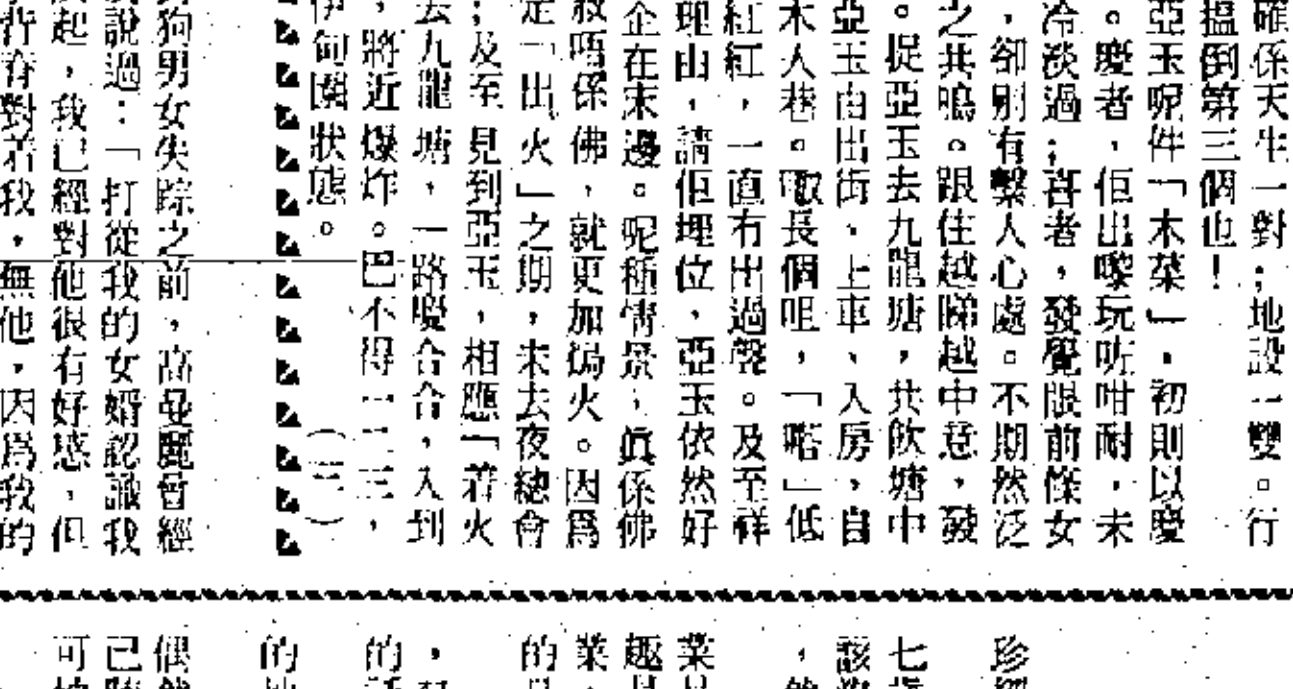 確係天生一對；地設一雙。行
搵倒第三個也！
亞玉呢件「木菜」，初則以慶
。慶者，佢出嚟玩咗咁耐，未
冷淡過；喜者，發覺眼前條女
，卻別有繫人心處。不期然泛
之共鳴。跟住越睇越中意，發
。捉亞玉去九龍塘，共飲塘中
亞玉由出街、上車、入房，自
木人巷。噉長個咀，「啱」低
紅紅，一直冇出過聲。及至祥
理由，請佢埋位，亞玉依然好
企在末邊。呢種情景，真係佛
敢唔係佛，就更加撝火。因爲
定「出火」之期，未去夜總會
；及至見到亞玉，相應「着火
去九龍塘，一路嗳合合，入到
，將近爆炸。巴不得一二三，
伊甸園狀態。（三）
狗男女失踪之前，高曼麗曾經
說過：「打從我的女婿認識我
起，我已經對他很有好感，但
對着我，無他，因爲我的
珍
七
該
，
業
趣
業
的
，
的
的
偶
已
可